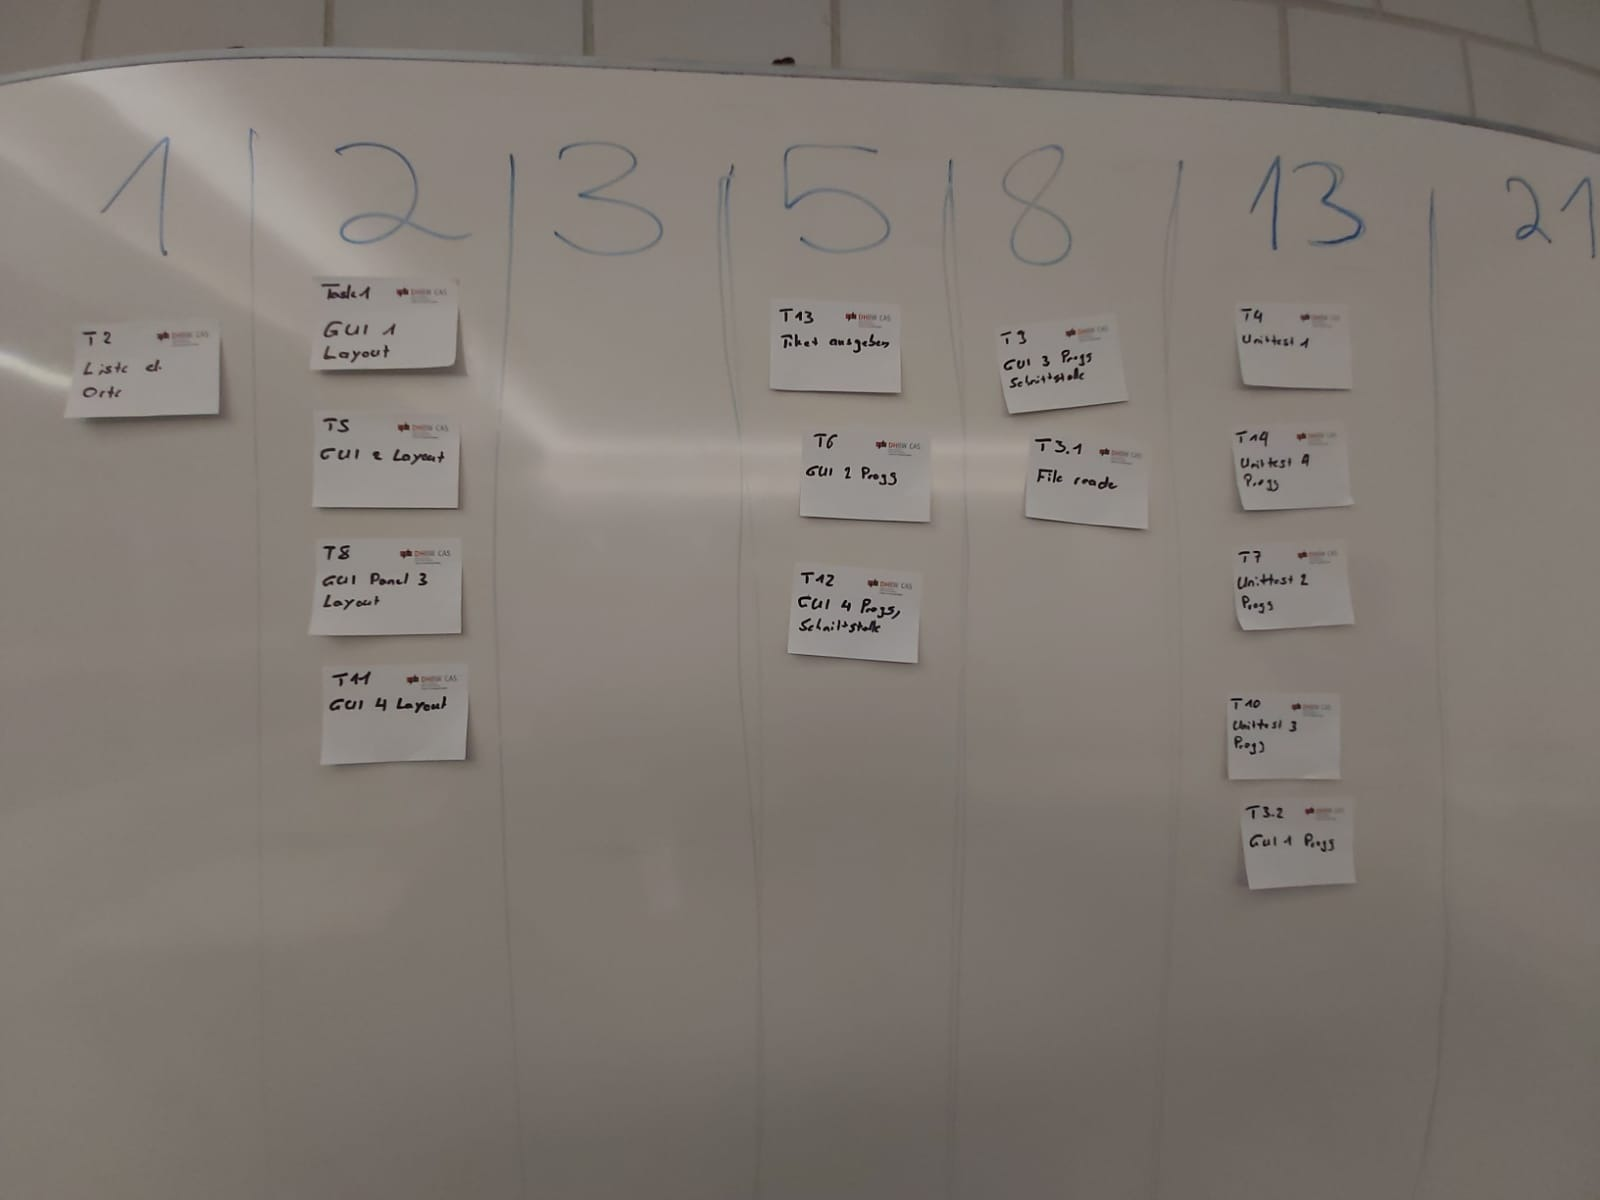 1 | 2 | 3 | 5 | 8 | 13 | 21
T2 DHBW CAS
Liste d.
Orte
Task 1 DHBW CAS
GUI 1
Layout
T5 DHBW CAS
GUI 2 Layout
T8 DHBW CAS
GUI Panel 3
Layout
T11 DHBW CAS
GUI 4 Layout
T13 DHBW CAS
Tiket ausgeben
T6 DHBW CAS
GUI 2 Progg
T12 DHBW CAS
GUI 4 Progg,
Schnittstelle
DHBW CAS
GUI 3 Progg
Schnittstelle
T3.1 DHBW CAS
File reade
T4 DHBW CAS
Unittest 1
T14 DHBW CAS
Unittest 4
Progg
T7 DHBW CAS
Unittest 2
Progg
T10 DHBW CAS
Unittest 3
Progg
T3.2 DHBW CAS
GUI 1 Progg